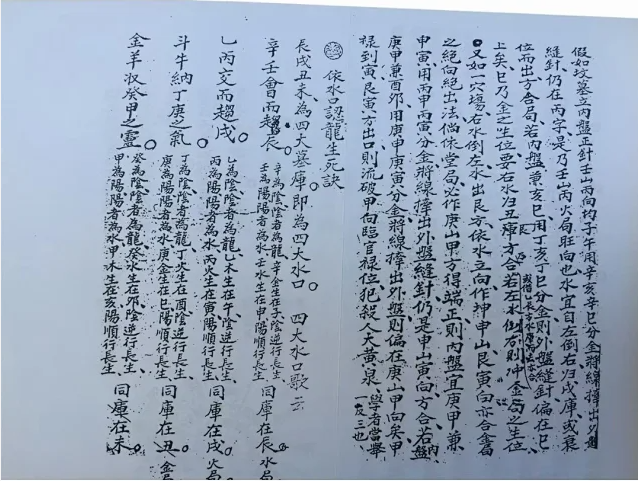 假如坟墓立內盤正針壬山丙向約子午用辛亥辛巳分金將線擇出外盤
縫針仍在丙字是乃壬山丙火局旺向也水宜自左倒右归戌庫或衰
位而出方合局若內盤兼亥巳用丁亥丁巳分金則外盤縫針偏在巳
上矣巳乃金之生位要右水归丑庫方合若左水倒右則冲金局之生位
又如一穴場右水倒左水出艮方依水立向作坤申山艮寅向亦合金局
之绝向绝出法倘依堂局必作庚山甲方得端正則內盤宜庚甲兼
申寅用丙申丙寅分金將線擇出外盤縫針仍是申山寅向方合若內盤
庚甲兼酉夘用庚申庚寅分金將線擇出外盤則偏在庚山甲向矣甲
禄到寅艮寅方出口則流破甲向臨官禄位犯殺人大黄泉
學者當舉一反三也
依水口認龍生死訣
辰戌丑未為四大墓庫即為四大水口 四大水口歌云
辛壬會而趨辰
辛為陰陰者為龍辛金生在子陰逆行長生
壬為陽陽者為水壬水生在申陽順行長生
同庫在辰水局
乙丙交而趨戌
乙為陰陰者為龍乙木生在午陰逆行長生
丙為陽陽者為水丙火生在寅陽順行長生
同庫在戌火局
斗牛納丁庚之氣
丁為陰陰者為龍丁火生在酉陰逆行長生
庚為陽陽者為水庚金生在巳陽順行長生
同庫在丑金局
金羊收癸甲之靈
癸為陰陰者為龍癸水生在夘陰逆行長生
甲為陽陽者為水甲木生在亥陽順行長生
同庫在未